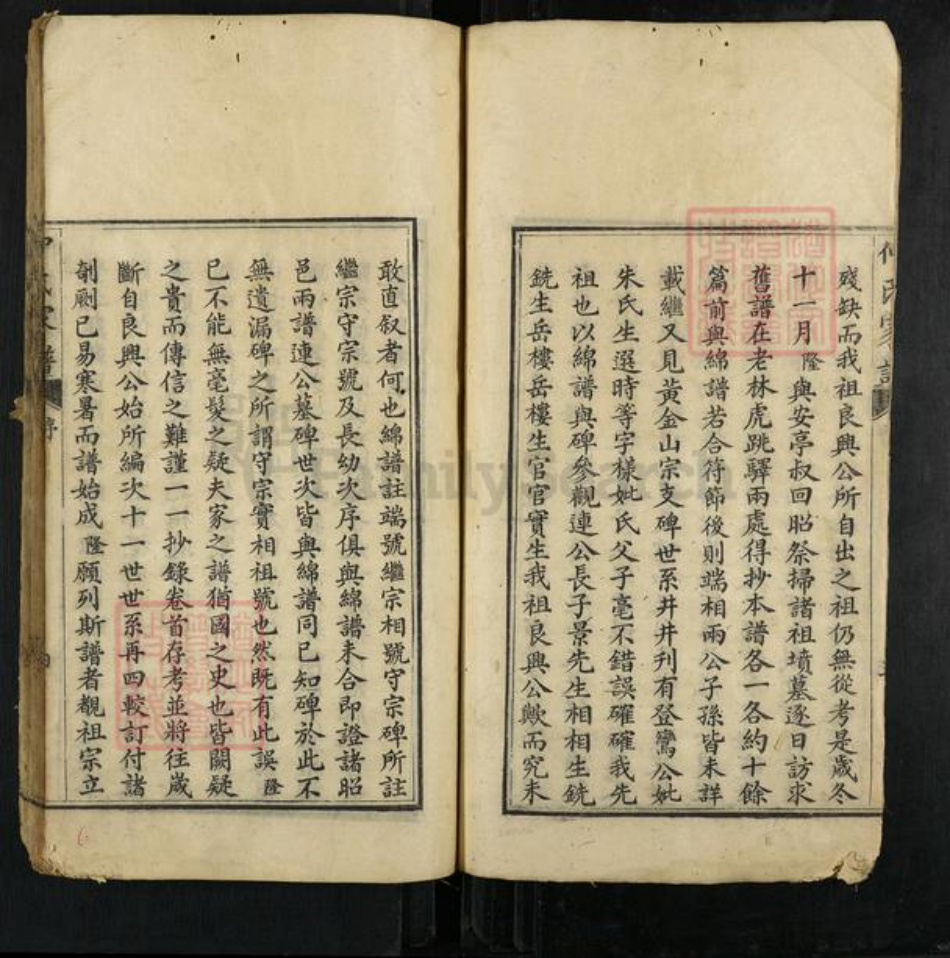 殘缺而我祖良興公所自出之祖仍無從考是歲冬
十一月隆與安亭叔回昭祭掃諸祖墳墓逐日訪求
舊譜在老林虎跳驛兩處得抄本譜各一各約十餘
篇前與綿譜若合符節後則端相兩公子孫皆未詳
載繼又見黃金山宗支碑世系井井刊有登鸞公妣
朱氏生選時等字樣妣氏父子毫不錯誤確確我先
祖也以綿譜與碑參觀連公長子景先生相相生銑
銑生岳樓岳樓生官官實生我祖良興公歟而究未
敢直叙者何也綿譜註端號繼宗相號守宗碑所註
繼宗守宗號及長幼次序俱與綿譜未合即證諸昭
邑兩譜連公墓碑世次皆與綿譜同已知碑於此不
無遺漏碑之所謂守宗實相祖號也然既有此誤隆
已不能無毫髮之疑夫家之譜猶國之史也皆闕疑
之貴而傳信之難謹一一抄錄卷首存考並將往歲
斷自良興公始所編次十一世世系再四較訂付諸
剞劂已易寒暑而譜始成隆願列斯譜者觀祖宗立
氏家譜
序
FamilySearch
6